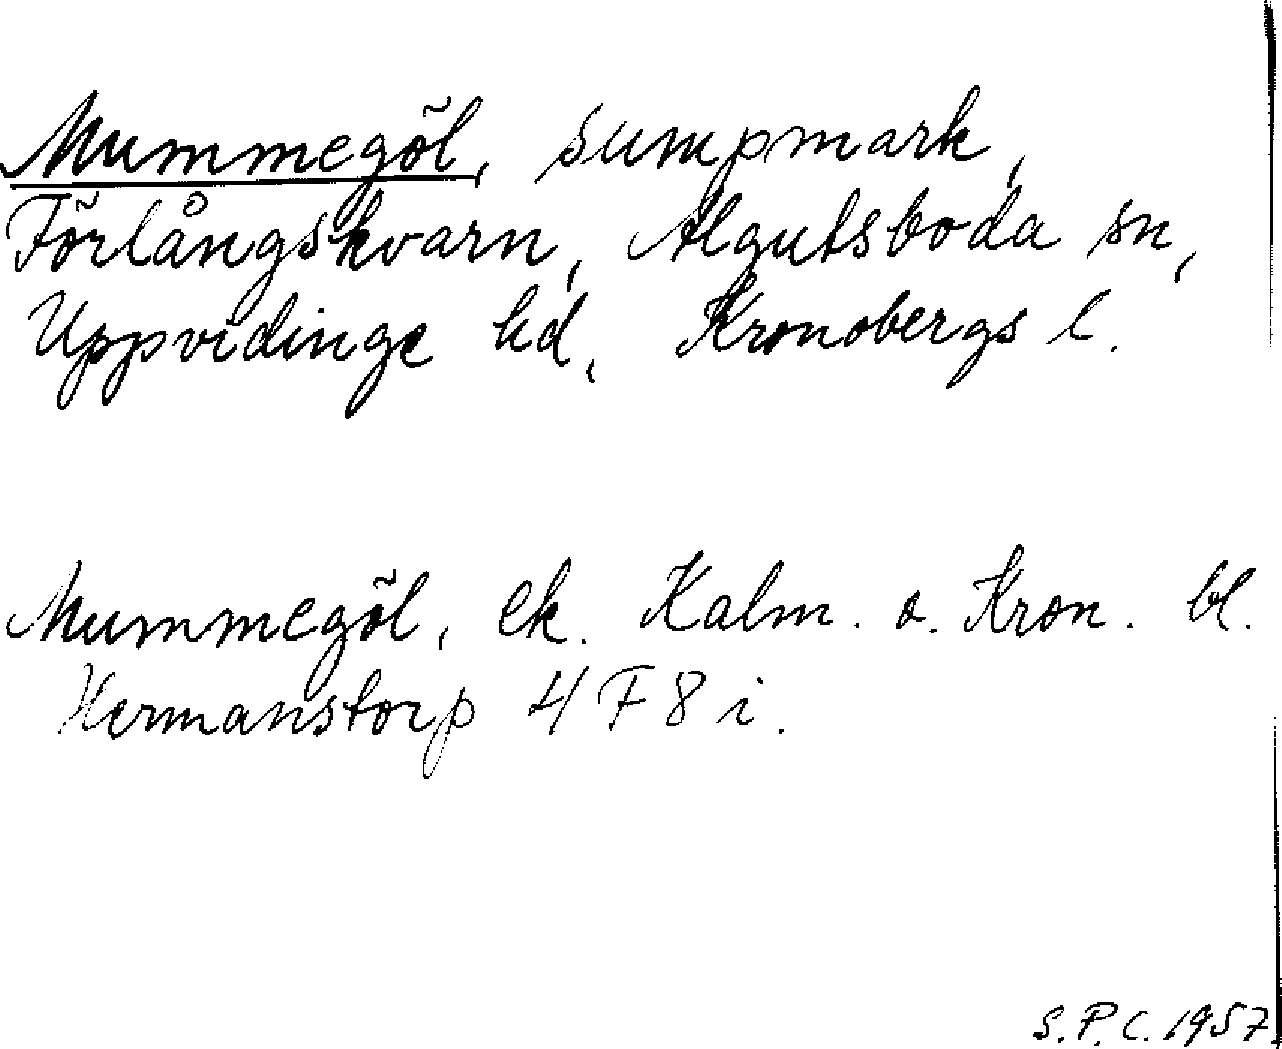 Mummegöl, sumpmark,
Förlångskvarn, Algutsboda sn,
Uppvidinge hd, Kronobergs l.
Mummegöl, ek. Kalm. o. Kron. bl.
Hermanstorp 4F8i.
S.P.C. 1957.